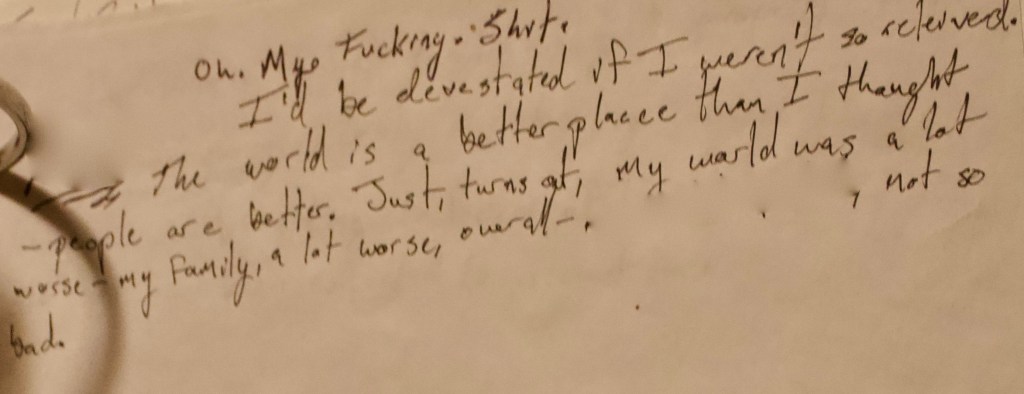 Oh. My. Fucking. Shit.
I'd be devestated if I weren't so releived.
The world is a better placee than I thought
- people are better. Just, turns out, my world was a lot
worse - my family, a lot worse, overall - . , not so
bad.